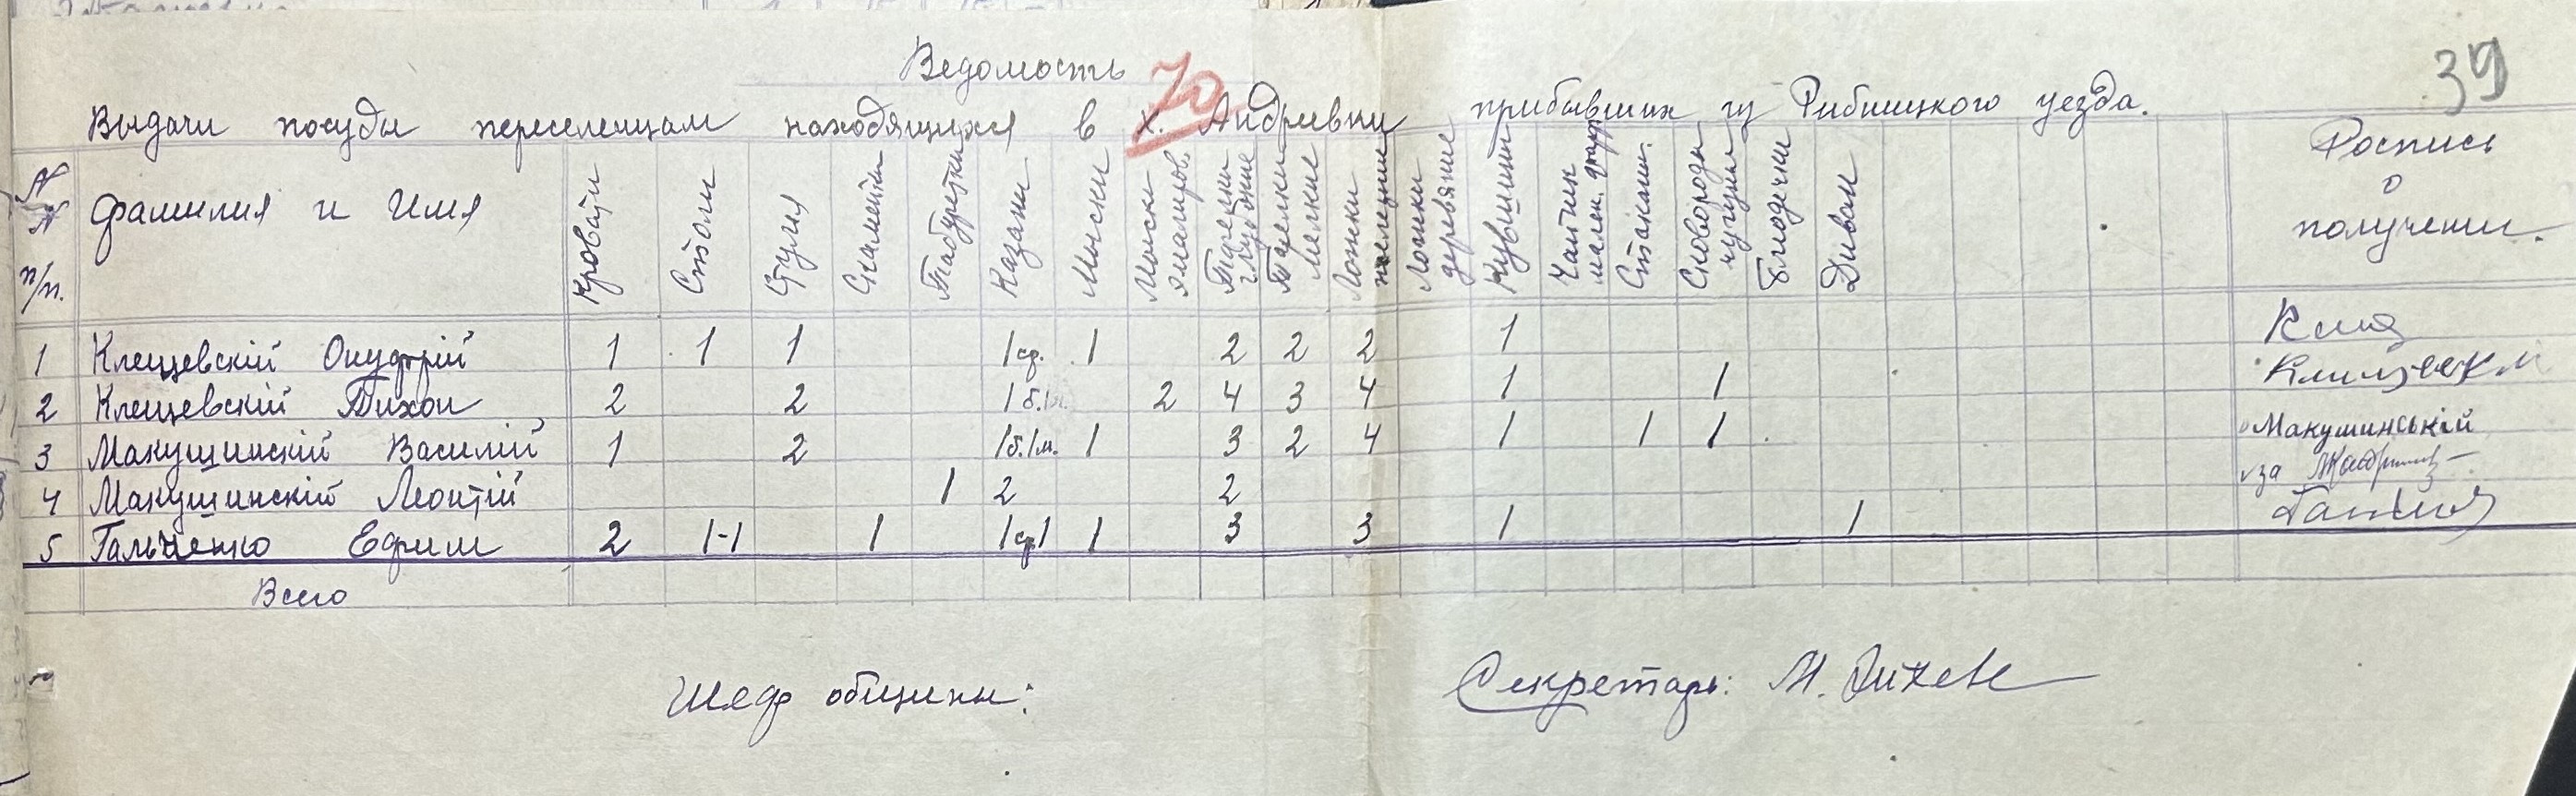 Ведомость
70
39
Выдачи посуды переселенцам находящихся в х. Андревки прибывших из Рибницкого уезда.
N N п/п. Фамилия и Имя Кровати Столи Стулия Скамейки Табуретки Казани Мыски Мыски эмалиров. Тарелки глубокие Тарелки мелкие Ложки Ложки деревяние Кувшини Чайник Стакани. Сковороды чугуния Блюдечки Дивани Роспись о получении.
1 Клещевскій Онуфрій 1 1 1 1 ср. 1 2 2 2 1
2 Клещевскій Тихон 2 2 1 б. 2 4 3 4 1 1
3 Макушинскій Василій 1 2 1б.1м. 1 3 2 4 1 1 1 Макушинський
4 Макушинскій Леонтій 1 2 2 за
5 Гальченко Ефим 2 1-1 1 1 ср1 1 3 3 1 1
Всего
Шеф общини: Секретарь: М.